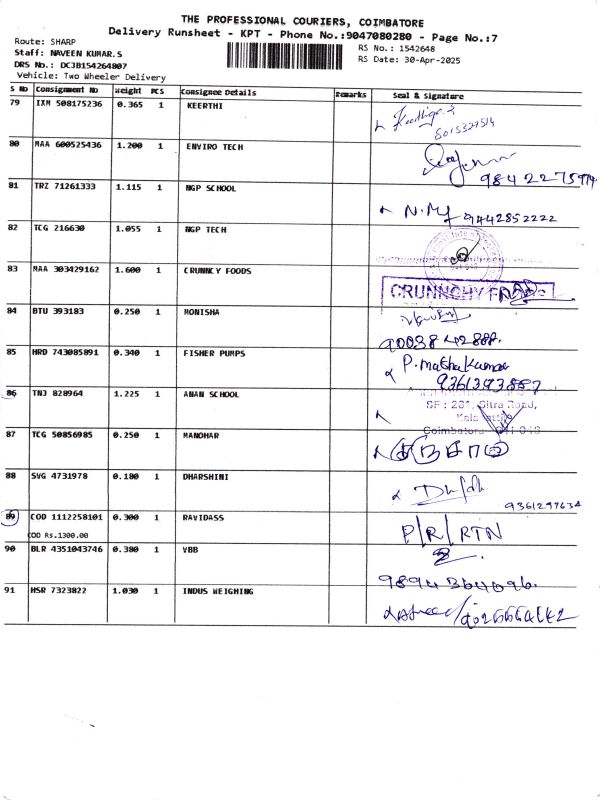 THE PROFESSIONAL COURIERS, COIMBATORE
Delivery Runsheet - KPT - Phone No.:9047080280 - Page No.:7
Route: SHARP
RS No.: 1542648
Staff: NAVEEN KUMAR.S
RS Date: 30-Apr-2025
DRS No.: DCJB154264807
Vehicle: Two Wheeler Delivery
S No Consignment No Weight PCS Consignee Details Remarks Seal & Signature
79 IXM 508175236 0.365 1 KEERTHI
80 MAA 600525436 1.200 1 ENVIRO TECH
9842275974
81 TRZ 71261333 1.115 1 NGP SCHOOL
9442852222
82 TCG 216630 1.055 1 NGP TECH
83 MAA 303429162 1.600 1 CRUNNCY FOODS
CRUNNCHY
84 BTU 393183 0.250 1 MONISHA
9003842888.
85 HRD 743085891 0.340 1 FISHER PUMPS
86 TNJ 828964 1.225 1 ANAN SCHOOL
SF : 281, Sitra Road,
Coimbatore
87 TCG 50856985 0.250 1 MANOHAR
88 SVG 4731978 0.180 1 DHARSHINI
9361297634
89 COD 1112258101 0.300 1 RAVIDASS P/R/RTN
COD Rs.1300.00
90 BLR 4351043746 0.380 1 VBB
9894364096.
91 HSR 7323822 1.030 1 INDUS WEIGHING